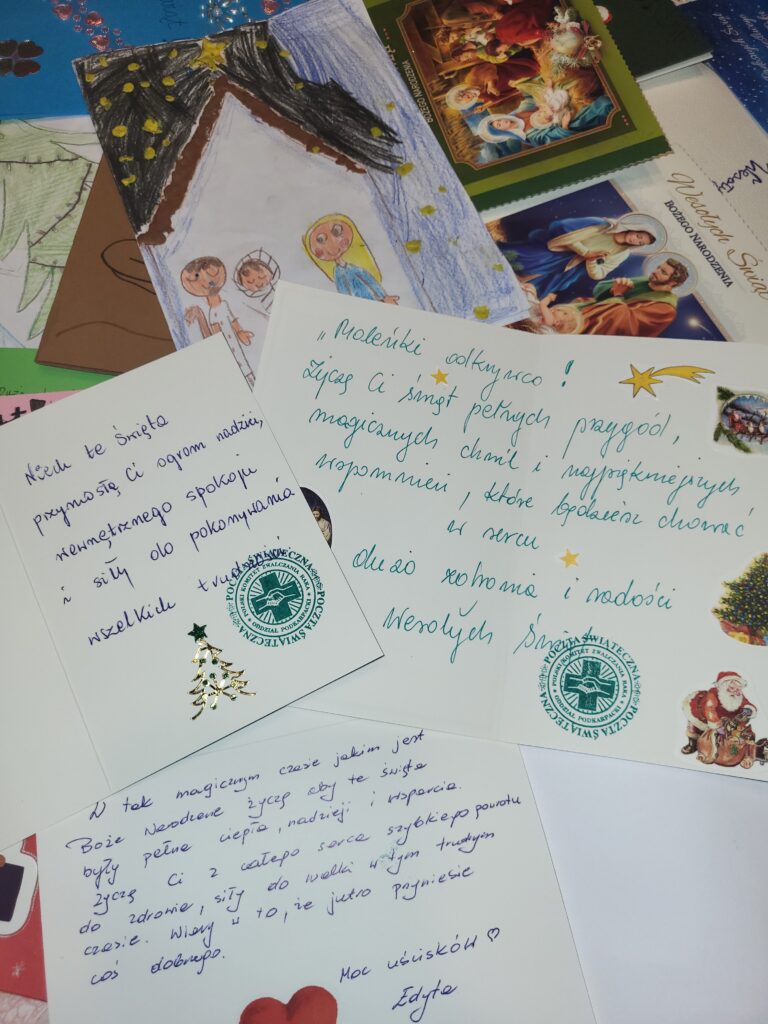 BOŻEGO NARODZENIA
Wesołych Świąt
BOŻEGO NARODZENIA
Wesoły
„Maleńki odkrywco !
Życzę Ci świąt pełnych przygód,
magicznych chwil i najpiękniejszych
wspomnień, które będziesz chować
w sercu
dużo zdrowia i radości
Wesołych Świąt
POCZTA ŚWIĄTECZNA
POLSKI KOMITET ZWALCZANIA RAKA
ODDZIAŁ PODKARPACKI
POCZTA ŚWIĄTECZNA
Niech te Święta
przyniosłą Ci ogrom nadziei,
wewnętrznego spokoju
i siły do pokonywania
wszelkich trudności
POCZTA ŚWIĄTECZNA
POLSKI KOMITET ZWALCZANIA RAKA
ODDZIAŁ PODKARPACKI
POCZTA ŚWIĄTECZNA
W tak magicznym czasie jakim jest
Boże Narodzenie życzę aby te święta
były pełne ciepła, nadziei i wsparcia.
Życzę Ci z całego serca szybkiego powrotu
do zdrowia, siły do walki w tym trudnym
czasie. Wierzę w to, że jutro przyniesie
coś dobrego.
Moc uścisków
Edyta